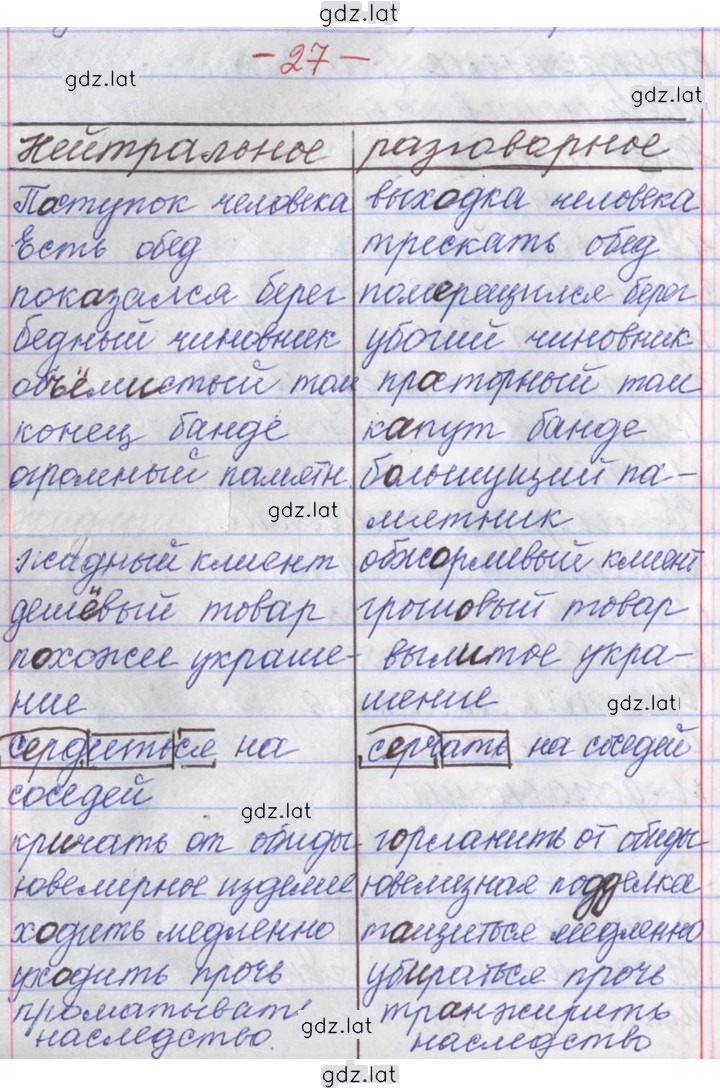 gdz.lat
- 27 -
gdz.lat
gdz.lat
нейтральное разговорное
Поступок человека выходка человека
Есть обед трескать обед
показался берег померещился берег
бедный чиновник убогий чиновник
объёмистый том просторный том
конец банде капут банде
огромный памятн. большущий па-
gdz.lat
мятник
жадный клиент обжорливый клиент
дешёвый товар грошовый товар
похожее украше- вылитое укра-
ние шение
gdz.lat
сердиться на серчать на соседей
соседей
gdz.lat
кричать от обиды горланить от обиды
ювелирное изделие ювелизная подделка
ходить медленно тащиться медленно
уходить прочь убираться прочь
проматывать транжирить
gdz.lat
наследство. наследство
gdz.lat